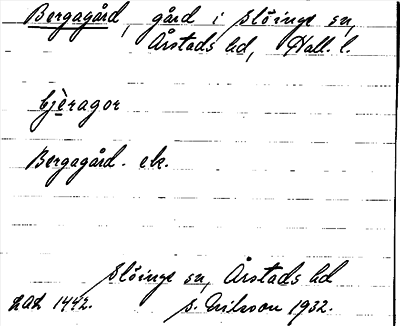 Bergagård, gård i Slöinge sn,
Årstads hd, Hall. l.
bjèragor
Bergagård. ek.
Slöinge sn, Årstads hd
1442. S. Nilsson 1932.